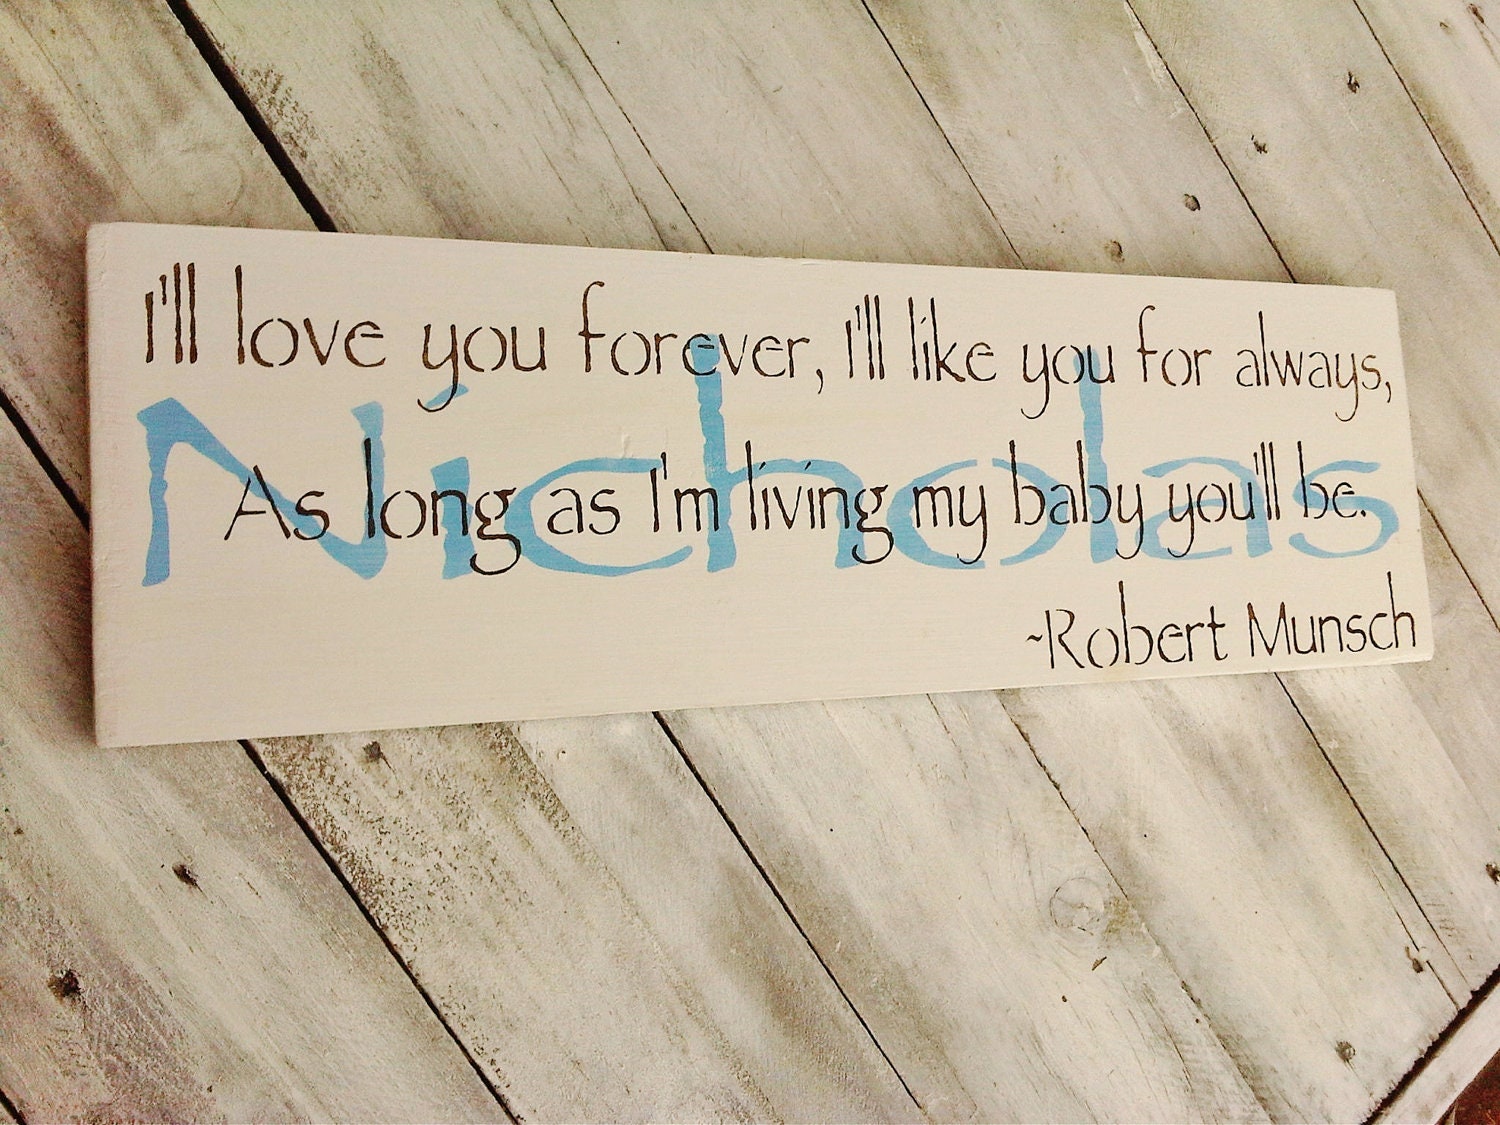 I'll love you forever, I'll like you for always,
Nicholas
As long as I'm living my baby you'll be.
~Robert Munsch